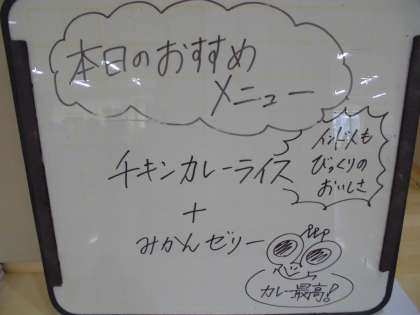 本日のおすすめ
メニュー
インド人も
びっくりの
おいしさ
チキンカレーライス
+
みかんゼリー
カレー最高!